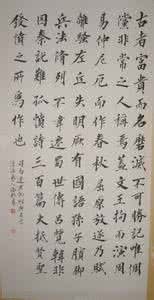 古者富貴而名磨滅不可勝記唯倜
儻非常之人稱焉蓋文王拘而演周
易仲尼厄而作春秋屈原放逐乃賦
離騷左丘失明厥有國語孫子臏腳
兵法脩列不韋遷蜀世傳呂覽韓非
囚秦說難孤憤詩三百篇大抵賢聖
發憤之所為作也